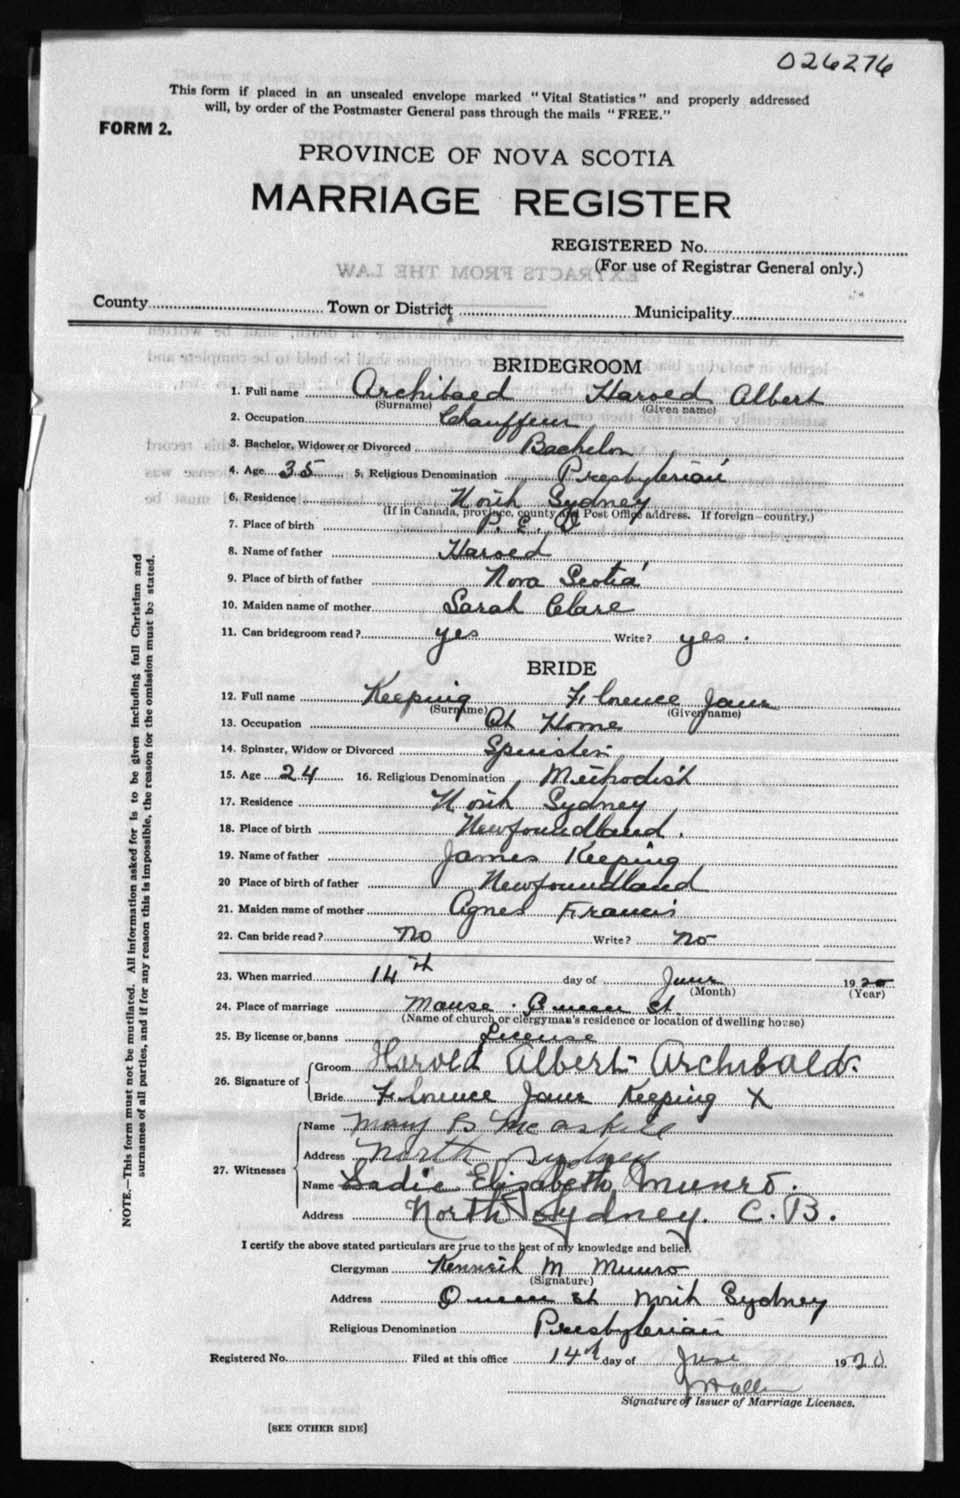 026276
This form if placed in an unsealed envelope marked "Vital Statistics" and properly addressed
will, by order of the Postmaster General pass through the mails "FREE."
FORM 2.
PROVINCE OF NOVA SCOTIA
MARRIAGE REGISTER
REGISTERED No.
(For use of Registrar General only.)
EXTRACTS FROM THE LAW
County Town or District Municipality
BRIDEGROOM
1. Full name Archibald Harold Albert
(Surname) (Given name)
2. Occupation Chauffeur
3. Bachelor, Widower or Divorced Bachelor
4. Age 35 5. Religious Denomination Presbyterian
6. Residence North Sydney
(If in Canada, province, county and Post Office address. If foreign country.)
7. Place of birth P. E. I
8. Name of father Harold
9. Place of birth of father Nova Scotia
10. Maiden name of mother Sarah Clare
11. Can bridegroom read? yes Write? yes.
BRIDE
12. Full name Keeping Florence Jane
(Surname) (Given name)
13. Occupation At Home
14. Spinster, Widow or Divorced Spinster
15. Age 24 16. Religious Denomination Methodist
17. Residence North Sydney
18. Place of birth Newfoundland.
19. Name of father James Keeping
20 Place of birth of father Newfoundland
21. Maiden name of mother Agnes Francis
22. Can bride read? No Write? No
23. When married 14th day of June 1920
(Month) (Year)
24. Place of marriage Manse. Queen St.
(Name of church or clergyman's residence or location of dwelling house)
25. By license or banns License
26. Signature of Groom Harold Albert Archibald.
Bride Florence Jane Keeping X
27. Witnesses Name Mary B McAskill
Address North Sydney
Name Sadie Elizabeth Munro.
Address North Sydney. C. B.
I certify the above stated particulars are true to the best of my knowledge and belief.
Clergyman Kenneth M Munro
(Signature)
Address Queen St North Sydney
Religious Denomination Presbyterian
Registered No. Filed at this office 14th day of June 1920
Signature of Issuer of Marriage Licenses.
[SEE OTHER SIDE]
NOTE.—This form must not be mutilated. All information asked for is to be given including full Christian and
surnames of all parties, and if for any reason this is impossible, the reason for the omission must be stated.